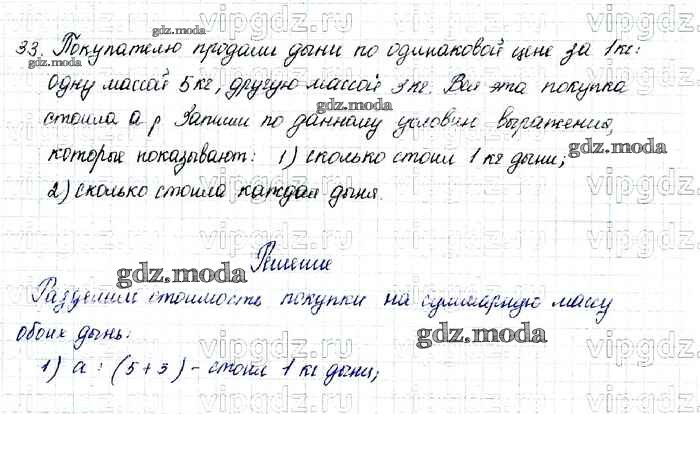 33. Покупателю продали дыни по одинаковой цене за 1 кг:
одну массой 5 кг, другую массой 3 кг. Вся эта покупка
стоила a р. Запиши по данному условию выражения,
которые показывают: 1) сколько стоил 1 кг дыни;
2) сколько стоила каждая дыня.
Решение
Разделим стоимость покупки на суммарную массу
обоих дынь:
1) a : (5 + 3) - стоил 1 кг дыни;